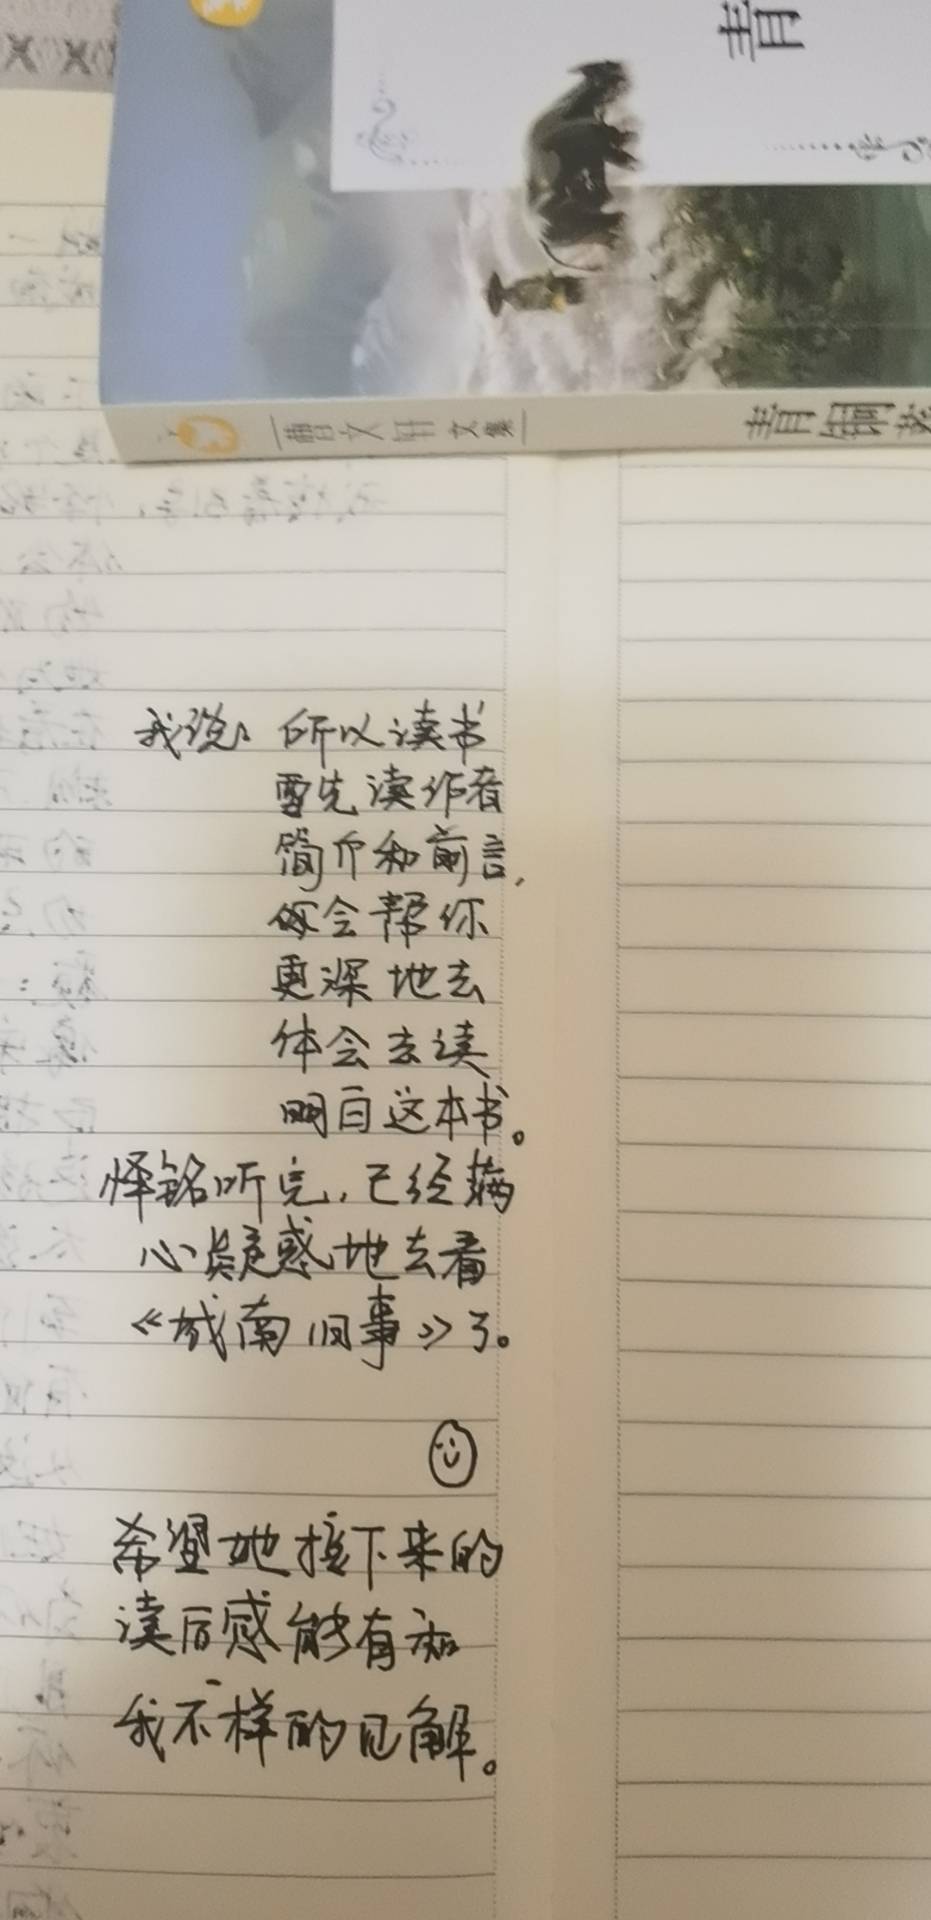 青
曹文轩文集
青铜葵
我说：所以读书
需先读作者
简介和前言，
会帮你
更深地去
体会去读
明白这本书。
怿铭听完，已经满
心疑惑地去看
《城南旧事》了。
希望她接下来的
读后感能有和
我不一样的见解。